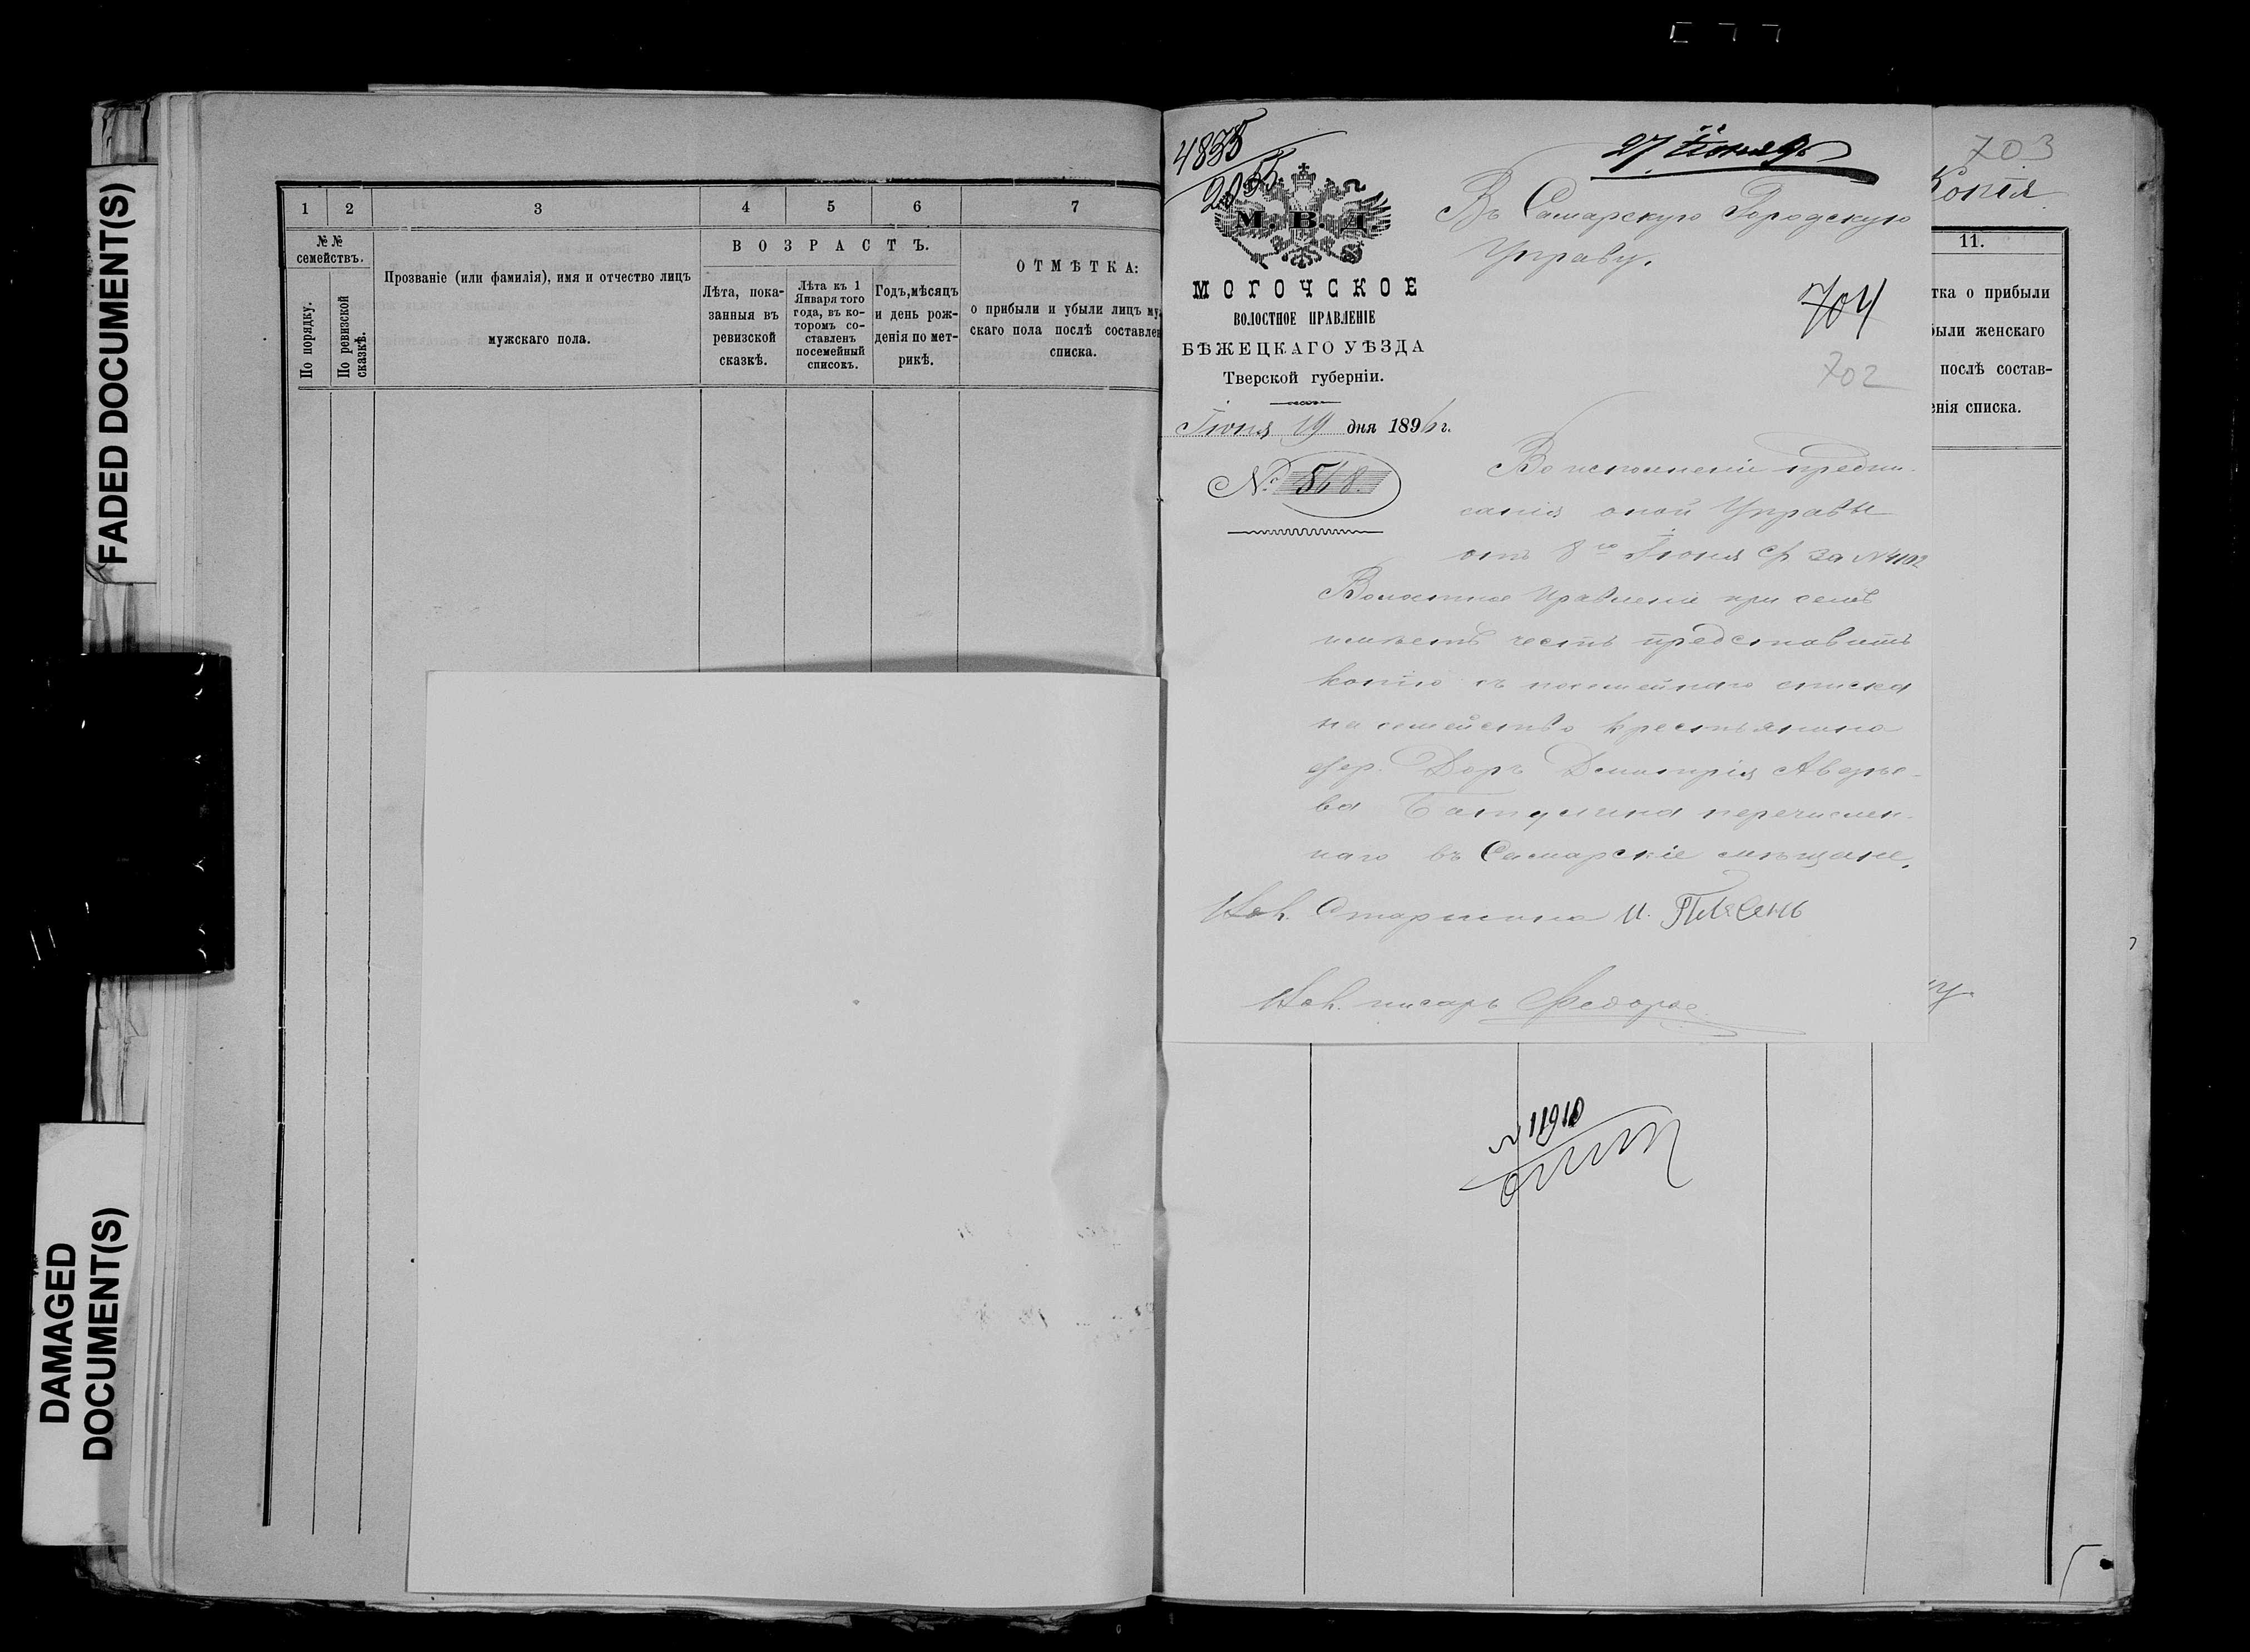 FADED DOCUMENT(S)
DAMAGED
DOCUMENT(S)
1 2 3 4 5 6 7
№№
семействъ.
По порядку.
По ревизской
сказкѣ.
Прозваніе (или фамилія), имя и отчество лицъ
мужскаго пола.
ВОЗРАСТЪ.
Лѣта, пока-
занныя въ
ревизской
сказкѣ.
Лѣта къ 1
Января того
года, въ ко-
торомъ со-
ставленъ
посемейный
списокъ.
Годъ, мѣсяцъ
и день рож-
денія по мет-
рикѣ.
ОТМѢТКА:
о прибыли и убыли лицъ му
скаго пола послѣ составле
списка.
4835
2055
27 Іюня 96
М. В. Д.
МОГОЧСКОЕ
ВОЛОСТНОЕ ПРАВЛЕНІЕ
БѢЖЕЦКАГО УѢЗДА
Тверской губерніи.
Іюня 19 дня 1896 г.
№ 568.
Въ Самарскую Городскую
Управу.
704
702
Во исполненіе предпи-
санія оной Управы
отъ 8го Іюня с/г за № 4102
Волостное Правленіе при семъ
имѣетъ честь представить
копію съ посемейнаго списка
на семейство крестьянина
дер. Доръ Дмитрія Аверье-
ва Батулина перечислен-
наго въ Самарскіе мѣщане.
Старшина И.
писарь Федоров
703
Копія
11.
тка о прибыли
были женскаго
послѣ состав-
енія списка.
№ 11910